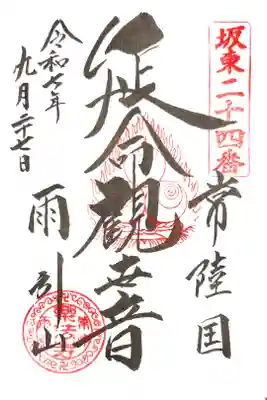 坂東二十四番
常陸国
延命観世音
雨引山
令和七年
九月二十七日